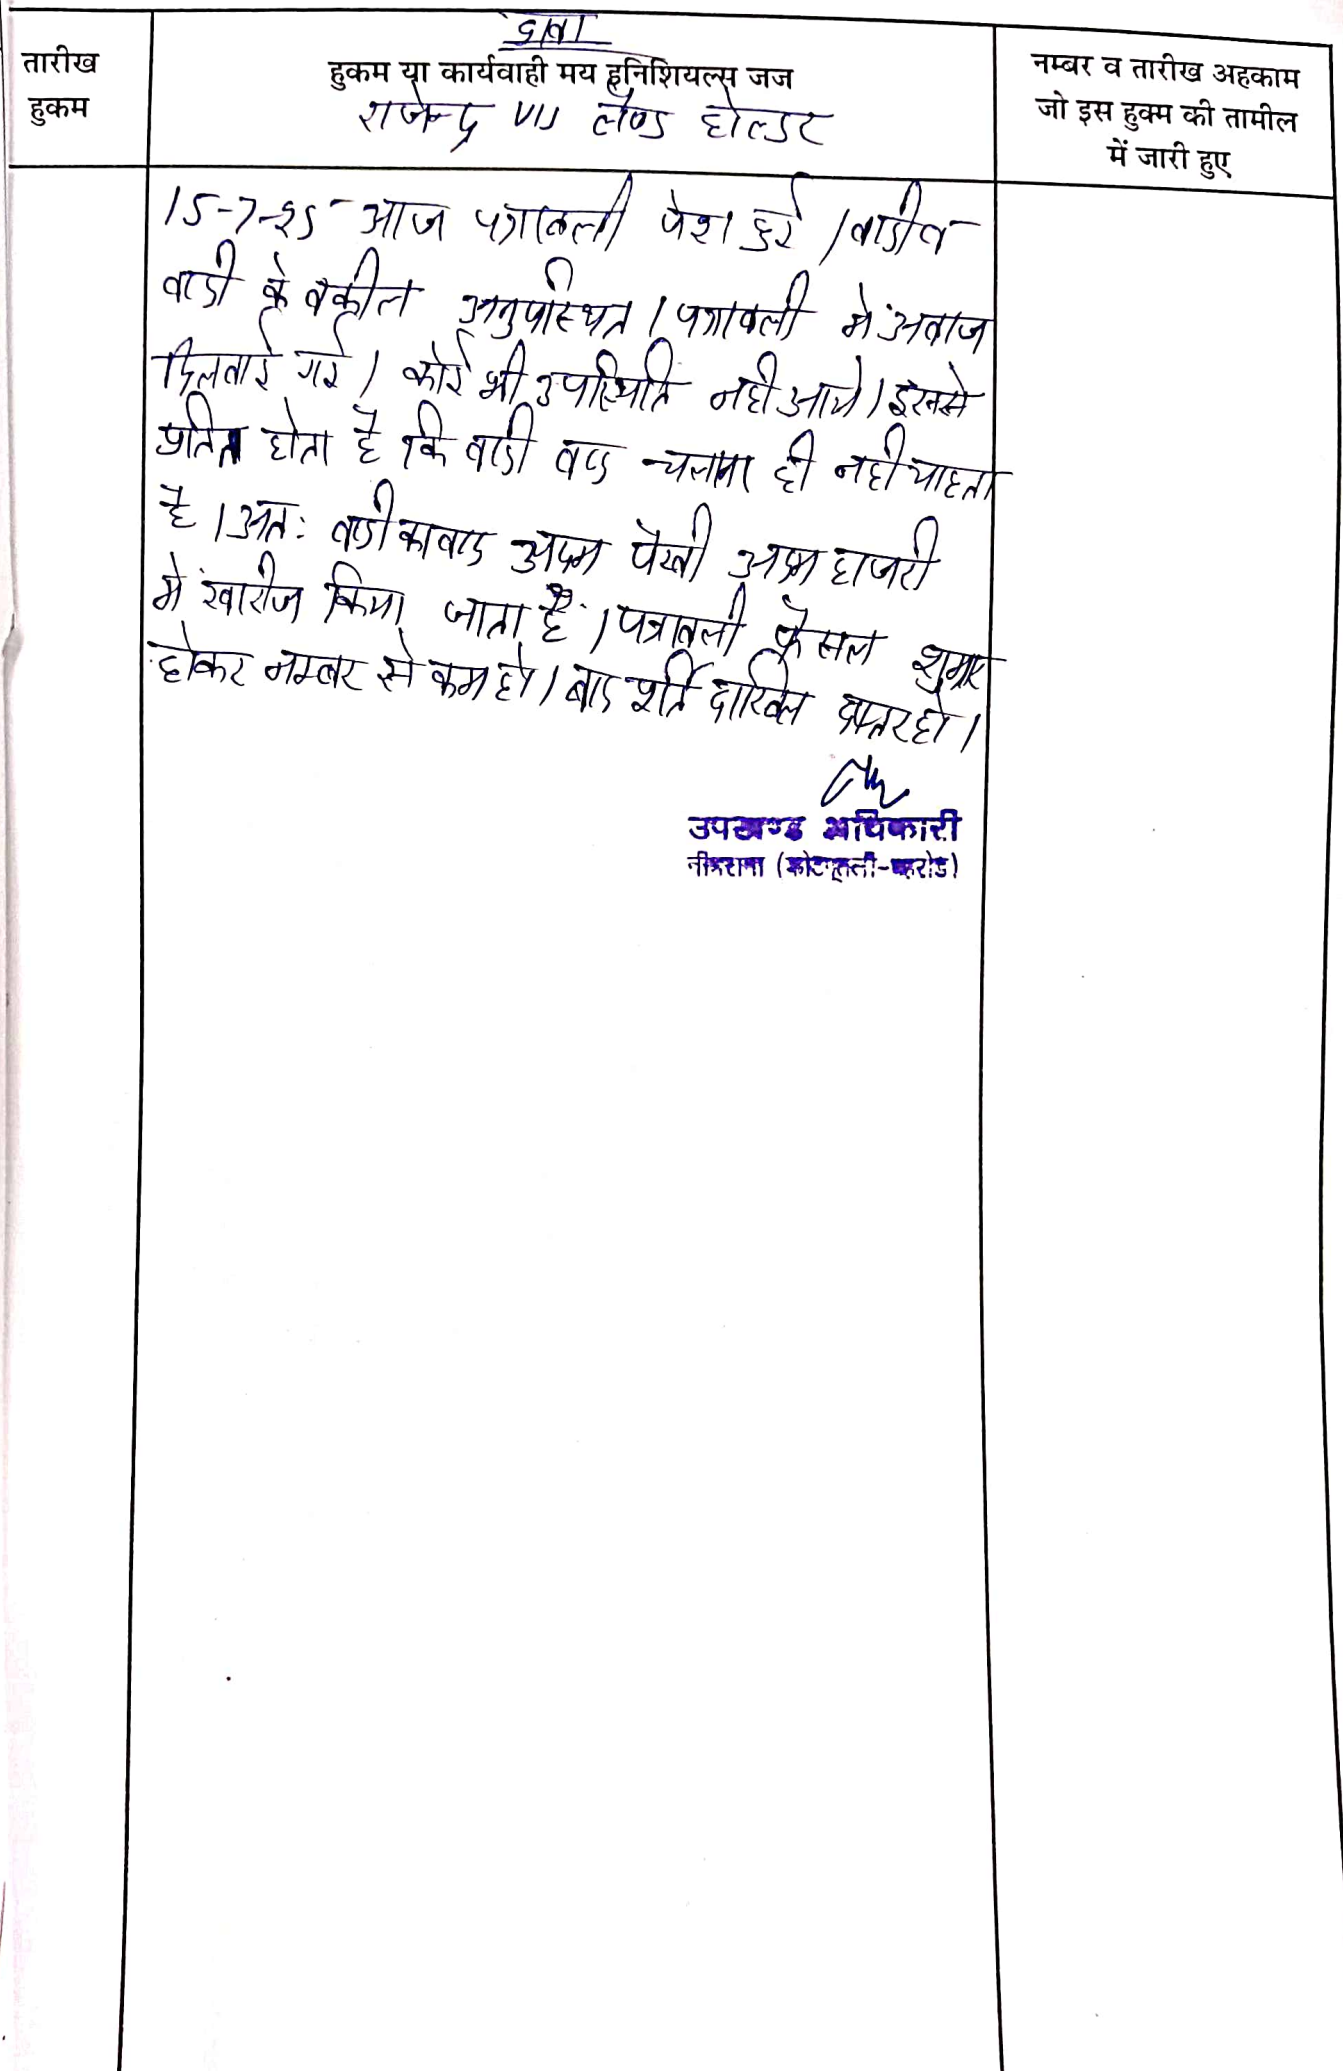 दावा
तारीख
हुकम
हुकम या कार्यवाही मय इनिशियल्स जज
राजेन्द्र V/S लैण्ड होल्डर
नम्बर व तारीख अहकाम
जो इस हुक्म की तामील
में जारी हुए
15-7-25 आज पत्रावली पेश हुई। वादी व
वादी के वकील अनुपस्थित। पत्रावली मे अवाज
दिलवाई गई। कोई भी उपस्थिति नही आये। इससे
प्रतित होता है कि वादी वाद चलाना ही नही चाहता
है। अतः वादी का वाद अदम पैरवी अदम हाजरी
मे खारीज किया जाता है। पत्रावली फैसल शुमार
होकर नम्बर से कम हो। बाद पूर्ति दाखिल दफ्तर हो।
उपखण्ड अधिकारी
नीमराना (कोटपूतली-बहरोड)